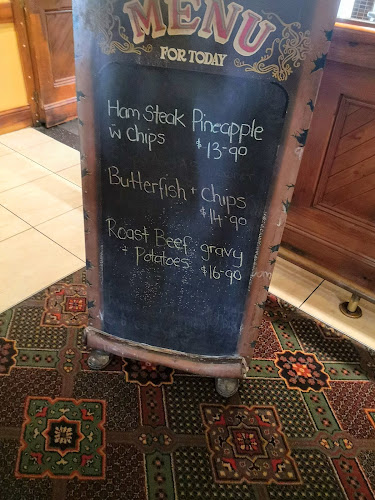 MENU
FOR TODAY
Ham Steak Pineapple
w chips $13-90
Butterfish + Chips
$14-90
Roast Beef gravy
+ Potatoes $16-90